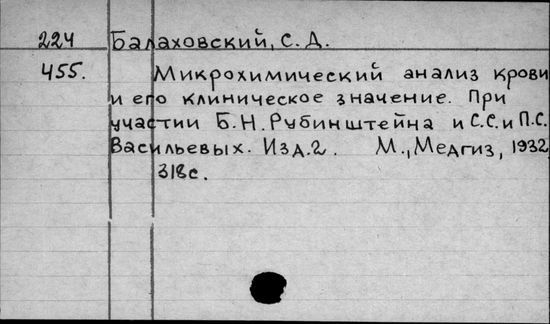 224 Балаховский, С. Д.
455. Микрохимический анализ крови
и его клиническое значение. При
участии Б.Н. Рубинштейна и С.С. и П.С.
Васильевых. Изд. 2. М., Медгиз, 1932
318с.